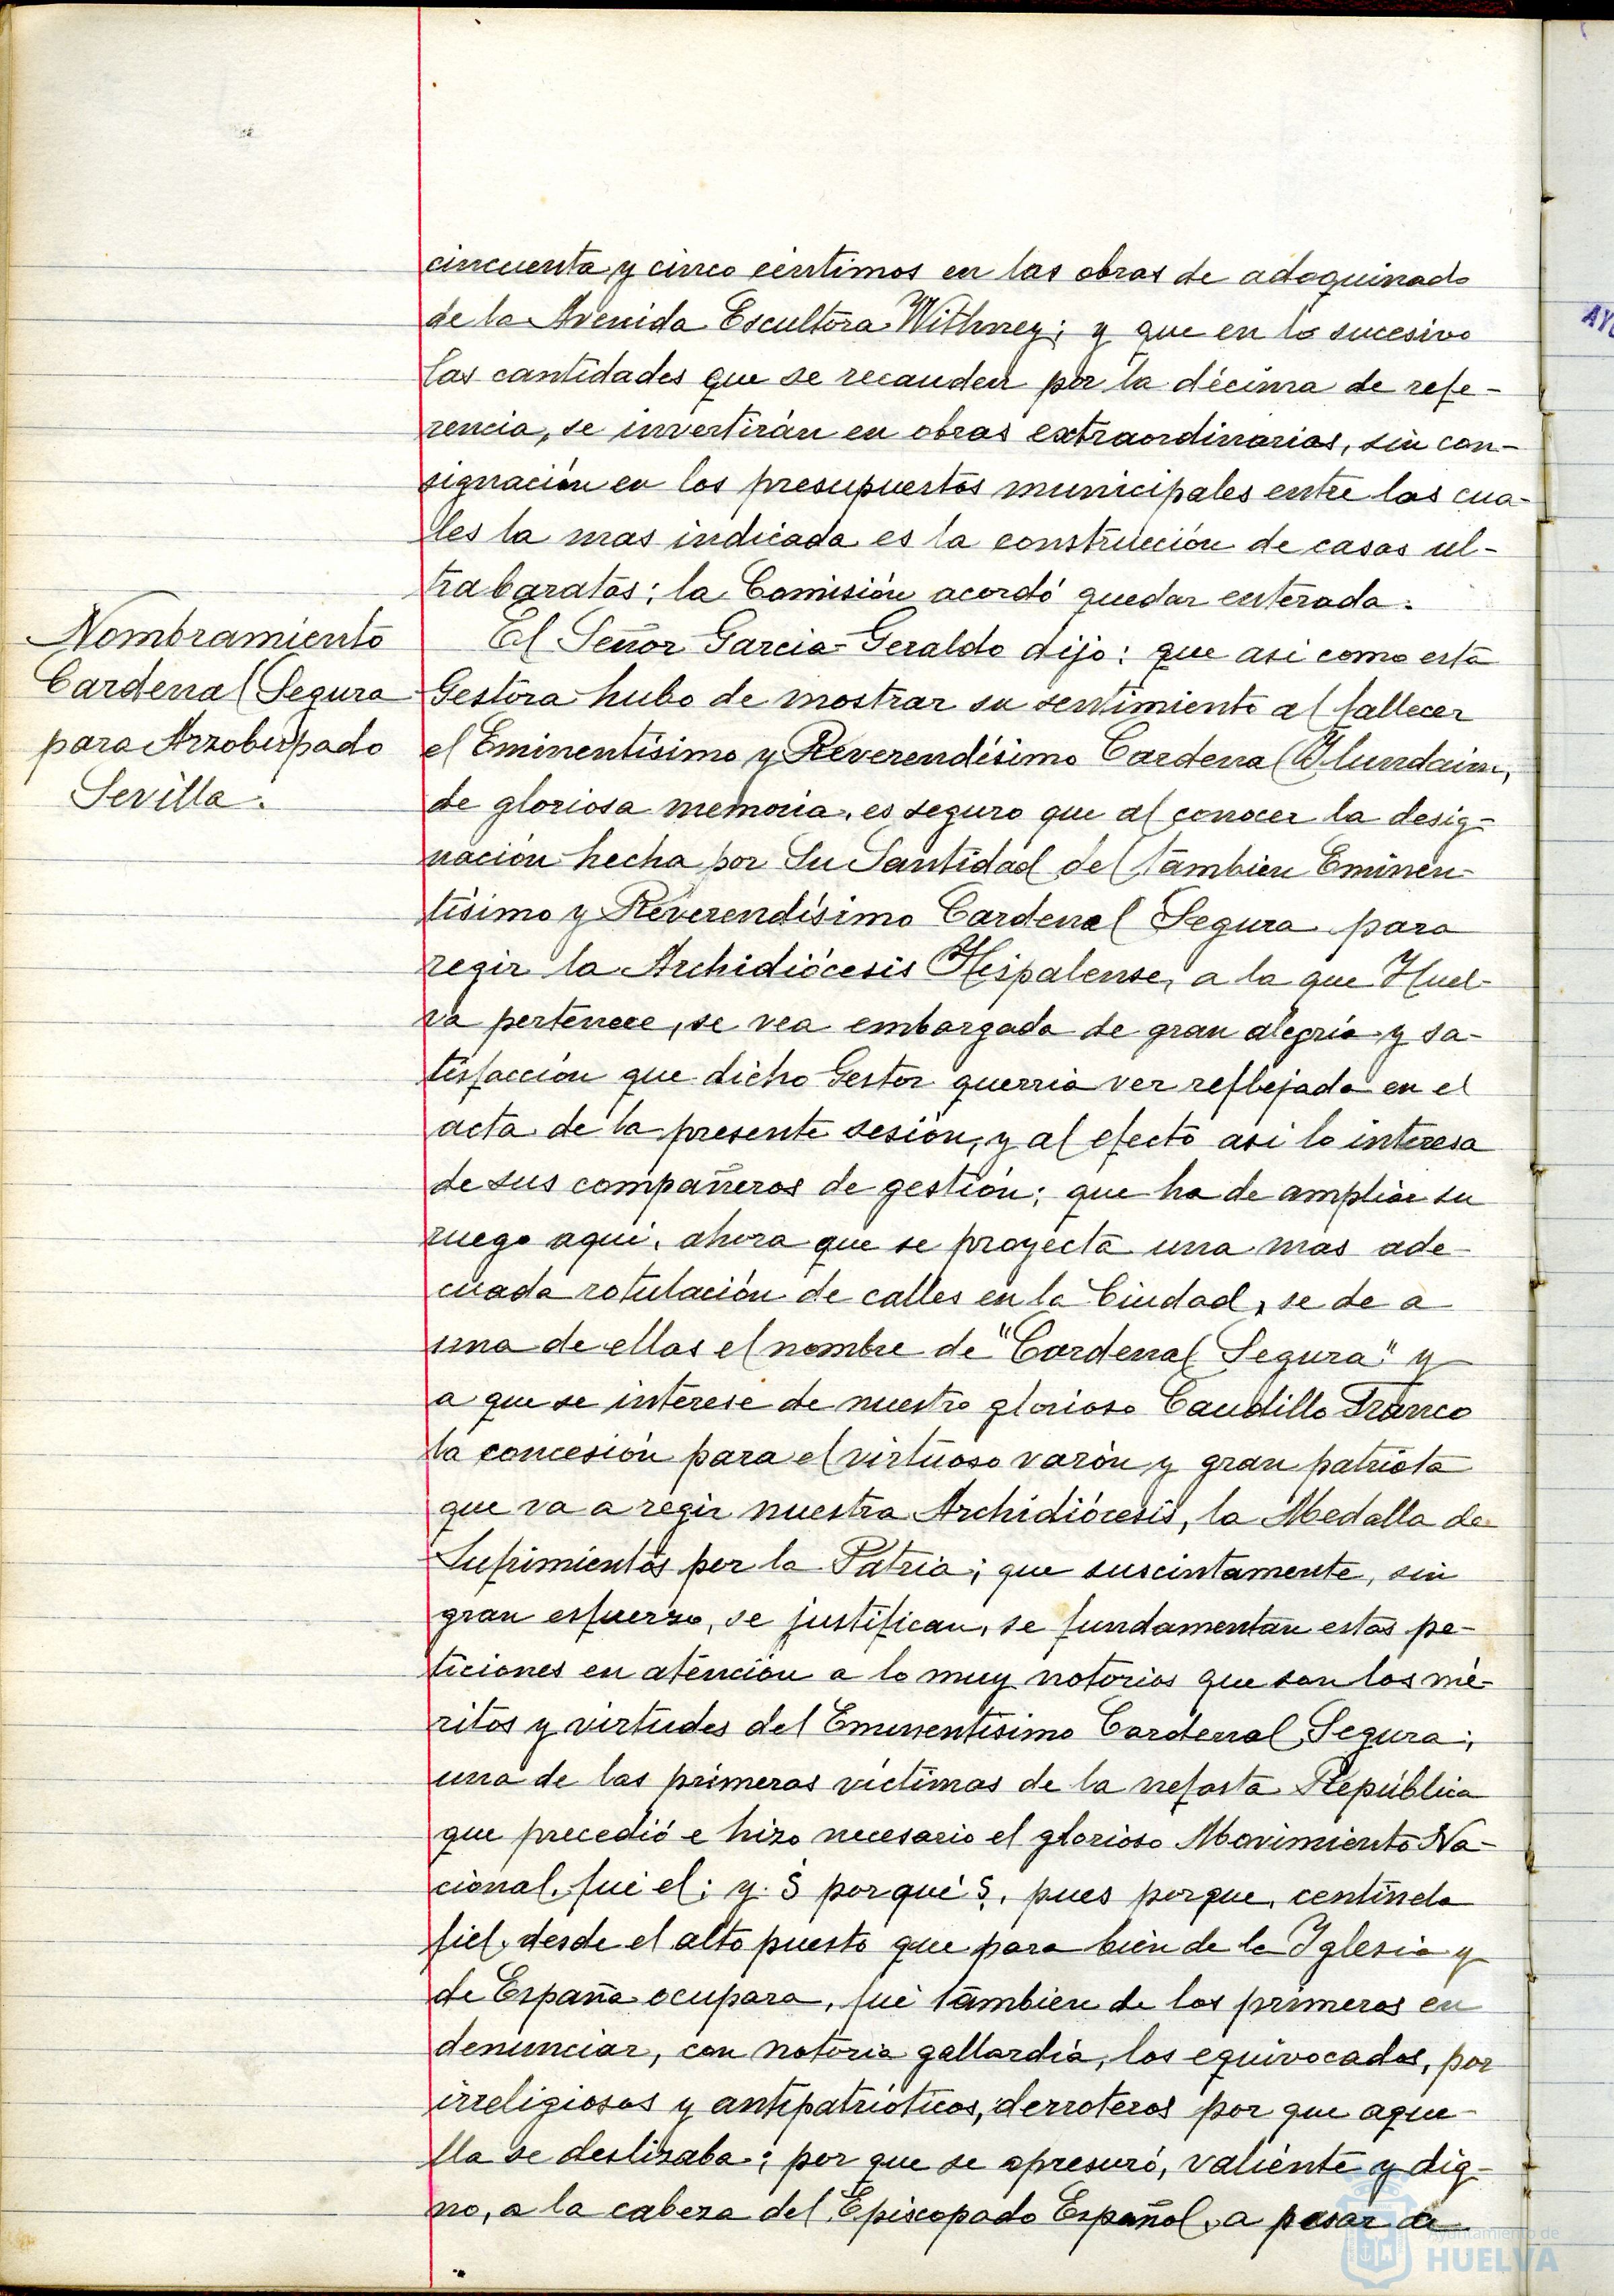 cincuenta y cinco céntimos en las obras de adoquinado
de la Avenida Escultora Withney; y que en lo sucesivo
las cantidades que se recauden por la décima de refe-
rencia, se invertirán en obras extraordinarias, sin con-
signación en los presupuestos municipales entre las cua-
les la mas indicada es la construcción de casas ul-
trabaratas; la Comisión acordó quedar enterada.
Nombramiento
Cardenal Segura
para Arzobispado
Sevilla.
El Señor Garcia-Geraldo dijo: que asi como esta
Gestora hubo de mostrar su sentimiento al fallecer
el Eminentísimo y Reverendísimo Cardenal Ylundain,
de gloriosa memoria, es seguro que al conocer la desig-
nación hecha por Su Santidad del tambien Eminen-
tísimo y Reverendísimo Cardenal Segura para
regir la Archidiócesis Hispalense, a la que Huel-
va pertenece, se vea embargada de gran alegría y sa-
tisfacción que dicho Gestor querria ver reflejada en el
acta de la presente sesión, y al efecto asi lo interesa
de sus compañeros de gestión; que ha de ampliar su
ruego aqui, ahora que se proyecta una mas ade-
cuada rotulación de calles en la Ciudad, se de a
una de ellas el nombre de "Cardenal Segura" y
a que se interese de nuestro glorioso Caudillo Franco
la concesión para el virtuoso varón y gran patriota
que va a regir nuestra Archidiócesis, la Medalla de
Sufrimientos por la Patria; que suscintamente, sin
gran esfuerzo, se justifican, se fundamentan estas pe-
ticiones en atención a lo muy notorios que son los mé-
ritos y virtudes del Eminentísimo Cardenal Segura;
una de las primeras víctimas de la nefasta República
que precedió e hizo necesario el glorioso Movimiento Na-
cional, fué el; y ¿ porqué ?, pues porque, centinela
fiel, desde el alto puesto que para bien de la Iglesia y
de España ocupara, fué tambien de los primeros en
denunciar, con notoria gallardía, los equivocados, por
irreligiosos y antipatrióticos, derroteros por que aque-
lla se deslizaba; por que se apresuró, valiente y dig-
no, a la cabeza del Episcopado Español, a pesar de
Ayuntamiento de
HUELVA